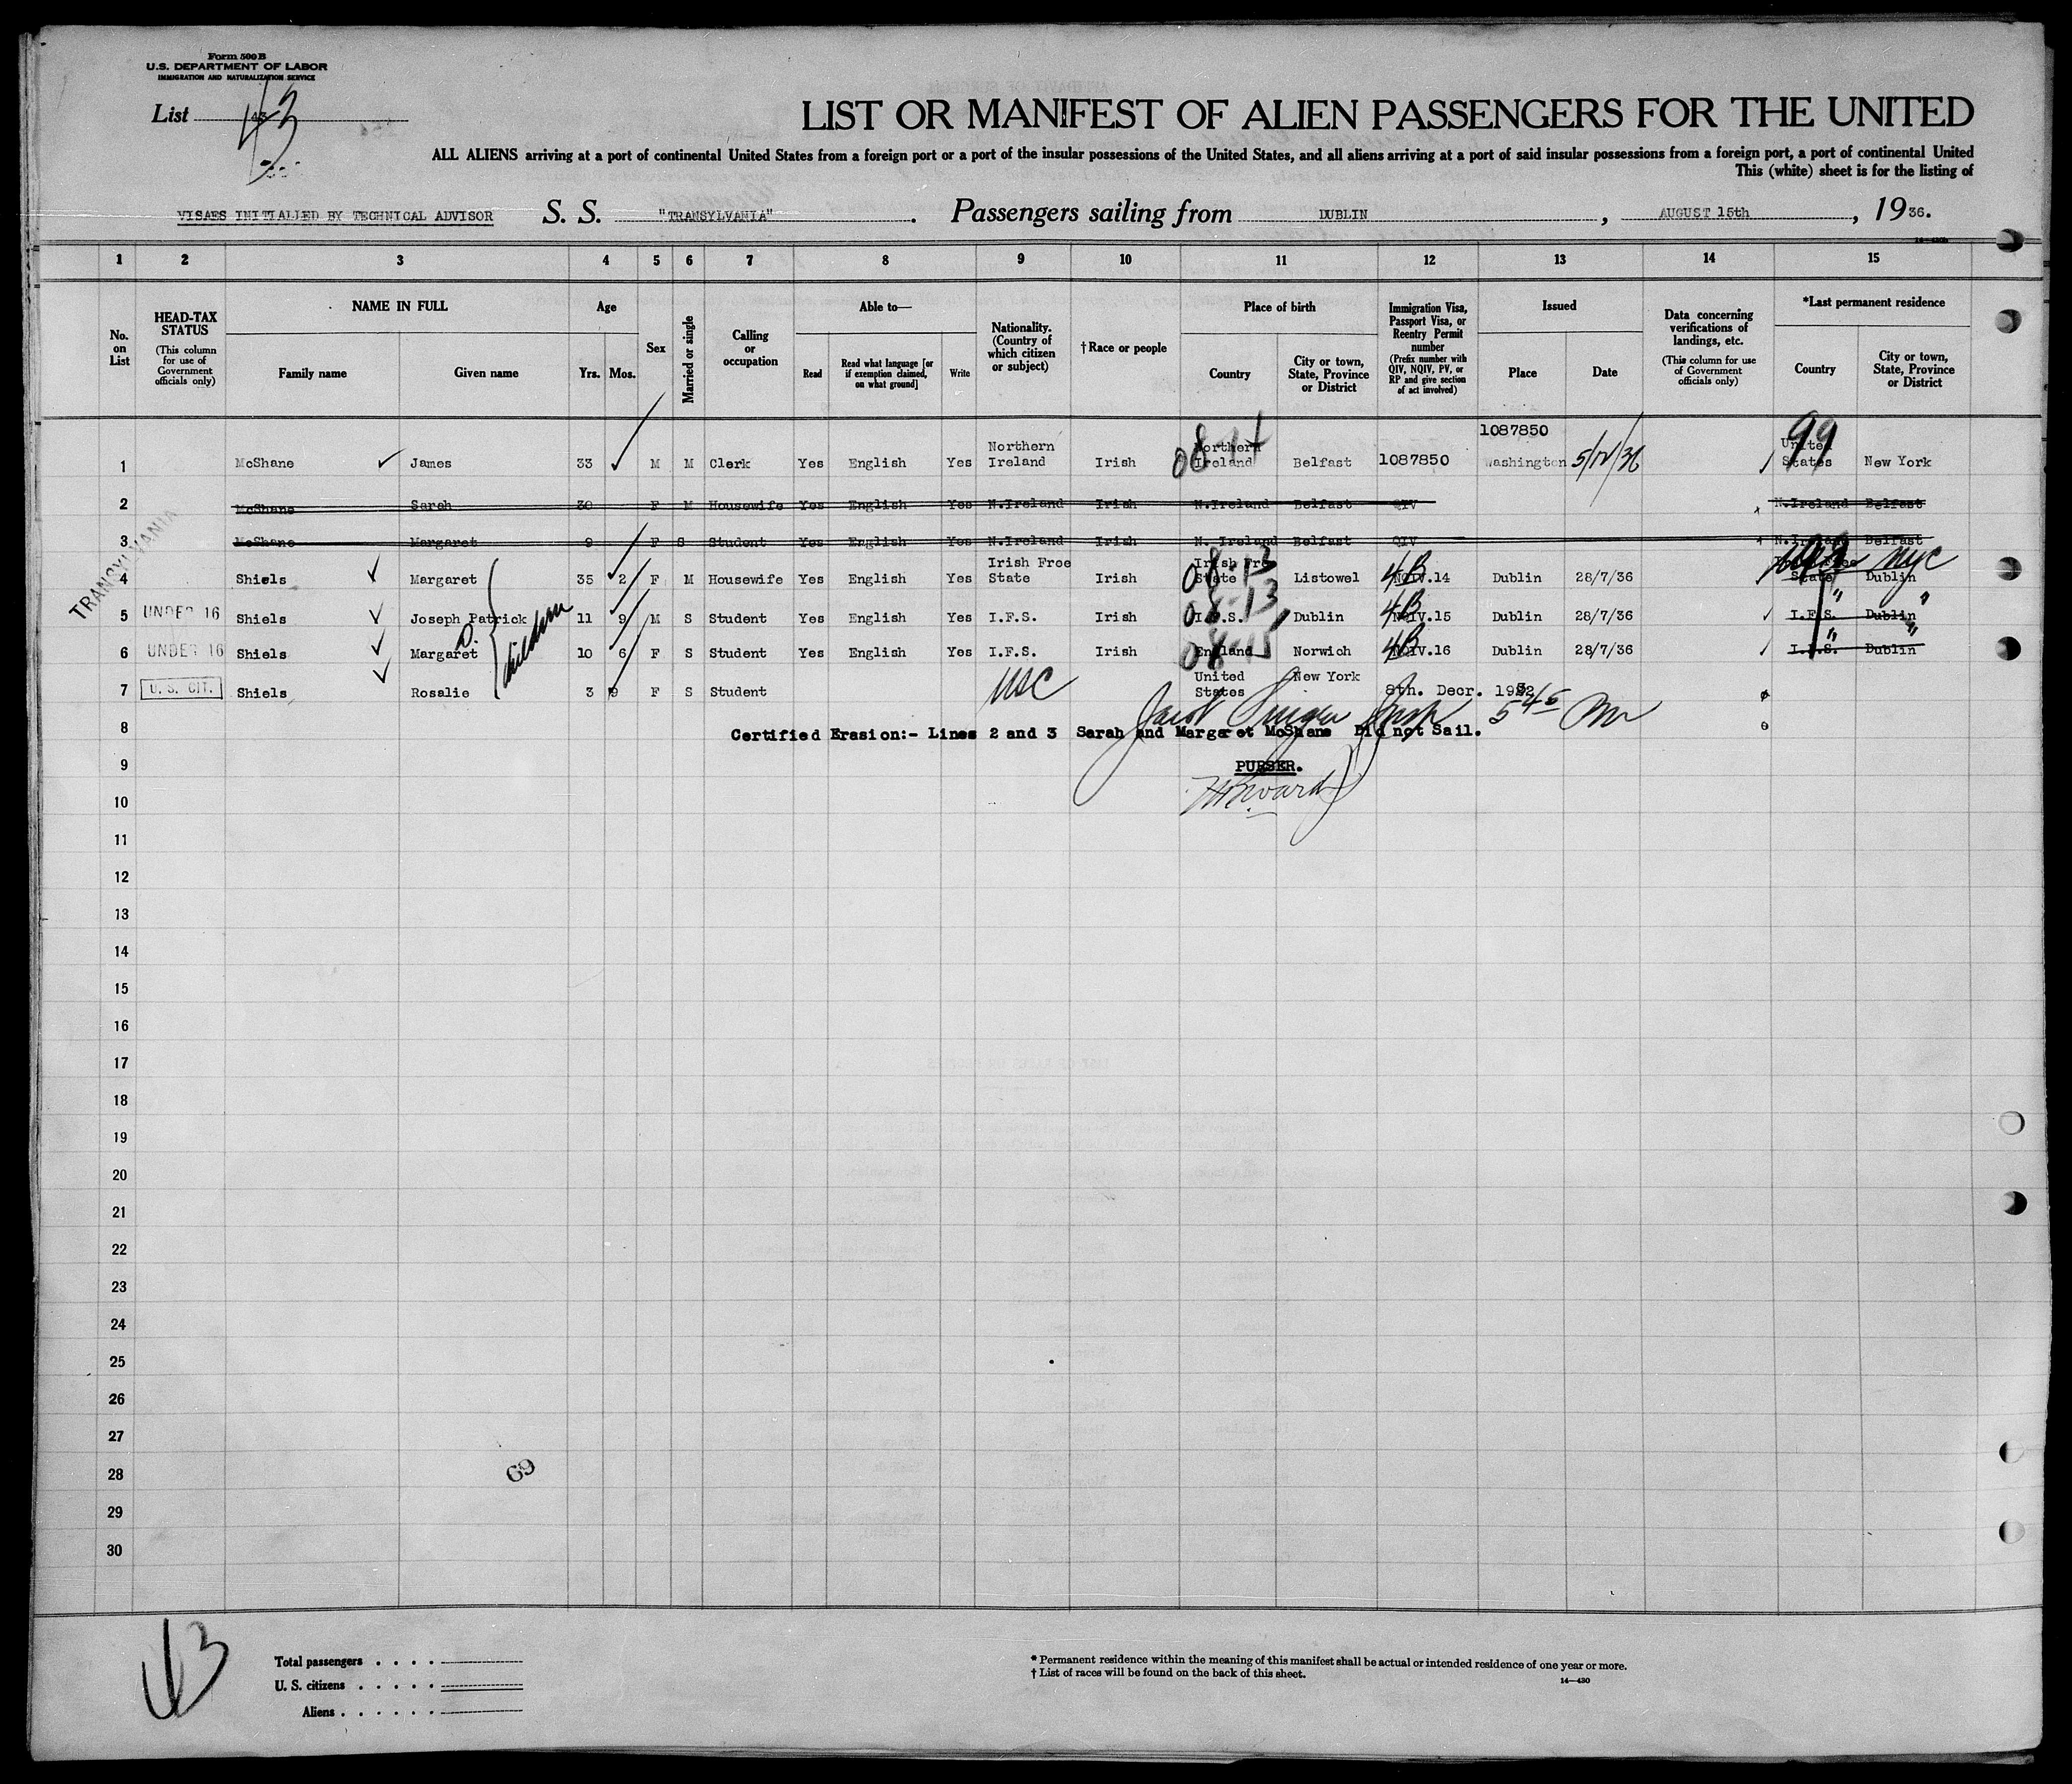 Form 500 B
U.S. DEPARTMENT OF LABOR
IMMIGRATION AND NATURALIZATION SERVICE
List 43
LIST OR MANIFEST OF ALIEN PASSENGERS FOR THE UNITED
ALL ALIENS arriving at a port of continental United States from a foreign port or a port of the insular possessions of the United States, and all aliens arriving at a port of said insular possessions from a foreign port, a port of continental United
This (white) sheet is for the listing of
VISAES INITIALLED BY TECHNICAL ADVISOR S. S. "TRANSYLVANIA". Passengers sailing from DUBLIN, AUGUST 15th, 1936.
1 2 3 4 5 6 7 8 9 10 11 12 13 14 15
No. on List
HEAD-TAX STATUS
(This column for use of Government officials only)
NAME IN FULL
Family name Given name
Age
Yrs. Mos.
Sex
Married or single
Calling or occupation
Able to—
Read Read what language [or if exemption claimed, on what ground] Write
Nationality. (Country of which citizen or subject)
†Race or people
Place of birth
Country City or town, State, Province or District
Immigration Visa, Passport Visa, or Reentry Permit number
(Prefix number with QIV, NQIV, PV, or RP and give section of act involved)
Issued
Place Date
Data concerning verifications of landings, etc.
(This column for use of Government officials only)
*Last permanent residence
Country City or town, State, Province or District
1087850
1 McShane James 33 M M Clerk Yes English Yes Northern Ireland Irish Northern Ireland 08-14 Belfast 1087850 Washington 5/12/36 United States 99 New York
2 McShane Sarah 30 F M Housewife Yes English Yes N.Ireland Irish N.Ireland Belfast QIV N.Ireland Belfast
3 McShane Margaret 9 F S Student Yes English Yes N.Ireland Irish N. Ireland Belfast QIV N.Ireland Belfast
TRANSYLVANIA
4 Shiels Margaret 35 2 F M Housewife Yes English Yes Irish Free State Irish Irish Free State 08-13 Listowel 4B NQIV.14 Dublin 28/7/36 State Dublin NYC
5 UNDER 16 Shiels Joseph Patrick 11 9 M S Student Yes English Yes I.F.S. Irish I.F.S. 08-13 Dublin 4B NQIV.15 Dublin 28/7/36 I.F.S. Dublin " "
6 UNDER 16 Shiels Margaret D. 10 6 F S Student Yes English Yes I.F.S. Irish England 08-15 Norwich 4B NQIV.16 Dublin 28/7/36 I.F.S. Dublin " "
children
7 U. S. CIT. Shiels Rosalie 3 9 F S Student USC United States New York 8th. Decr. 1932
8 Certified Erasion:- Lines 2 and 3 Sarah and Margaret McShane Did not Sail.
9 PURSER.
10
11
12
13
14
15
16
17
18
19
20
21
22
23
24
25
26
27
28
29
30
69
Total passengers
U. S. citizens
Aliens
* Permanent residence within the meaning of this manifest shall be actual or intended residence of one year or more.
† List of races will be found on the back of this sheet.
14—430